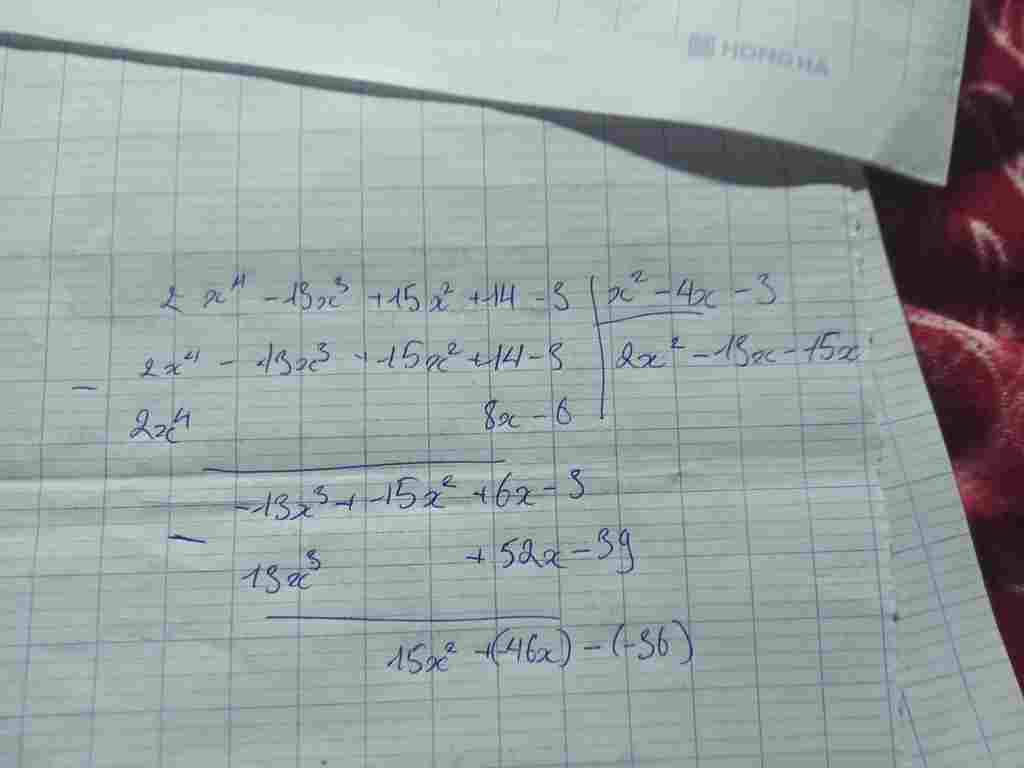 HONG HA
2 x⁴ - 13x³ + 15x² + 14 - 3 | x² - 4x - 3
2x⁴ - 13x³ + 15x² + 14 - 3 | 2x² - 13x - 15x
- 2x⁴ 8x - 6
-13x³ + 15x² + 6x - 3
- 13x³ + 52x - 39
15x² + (-46x) - (-36)